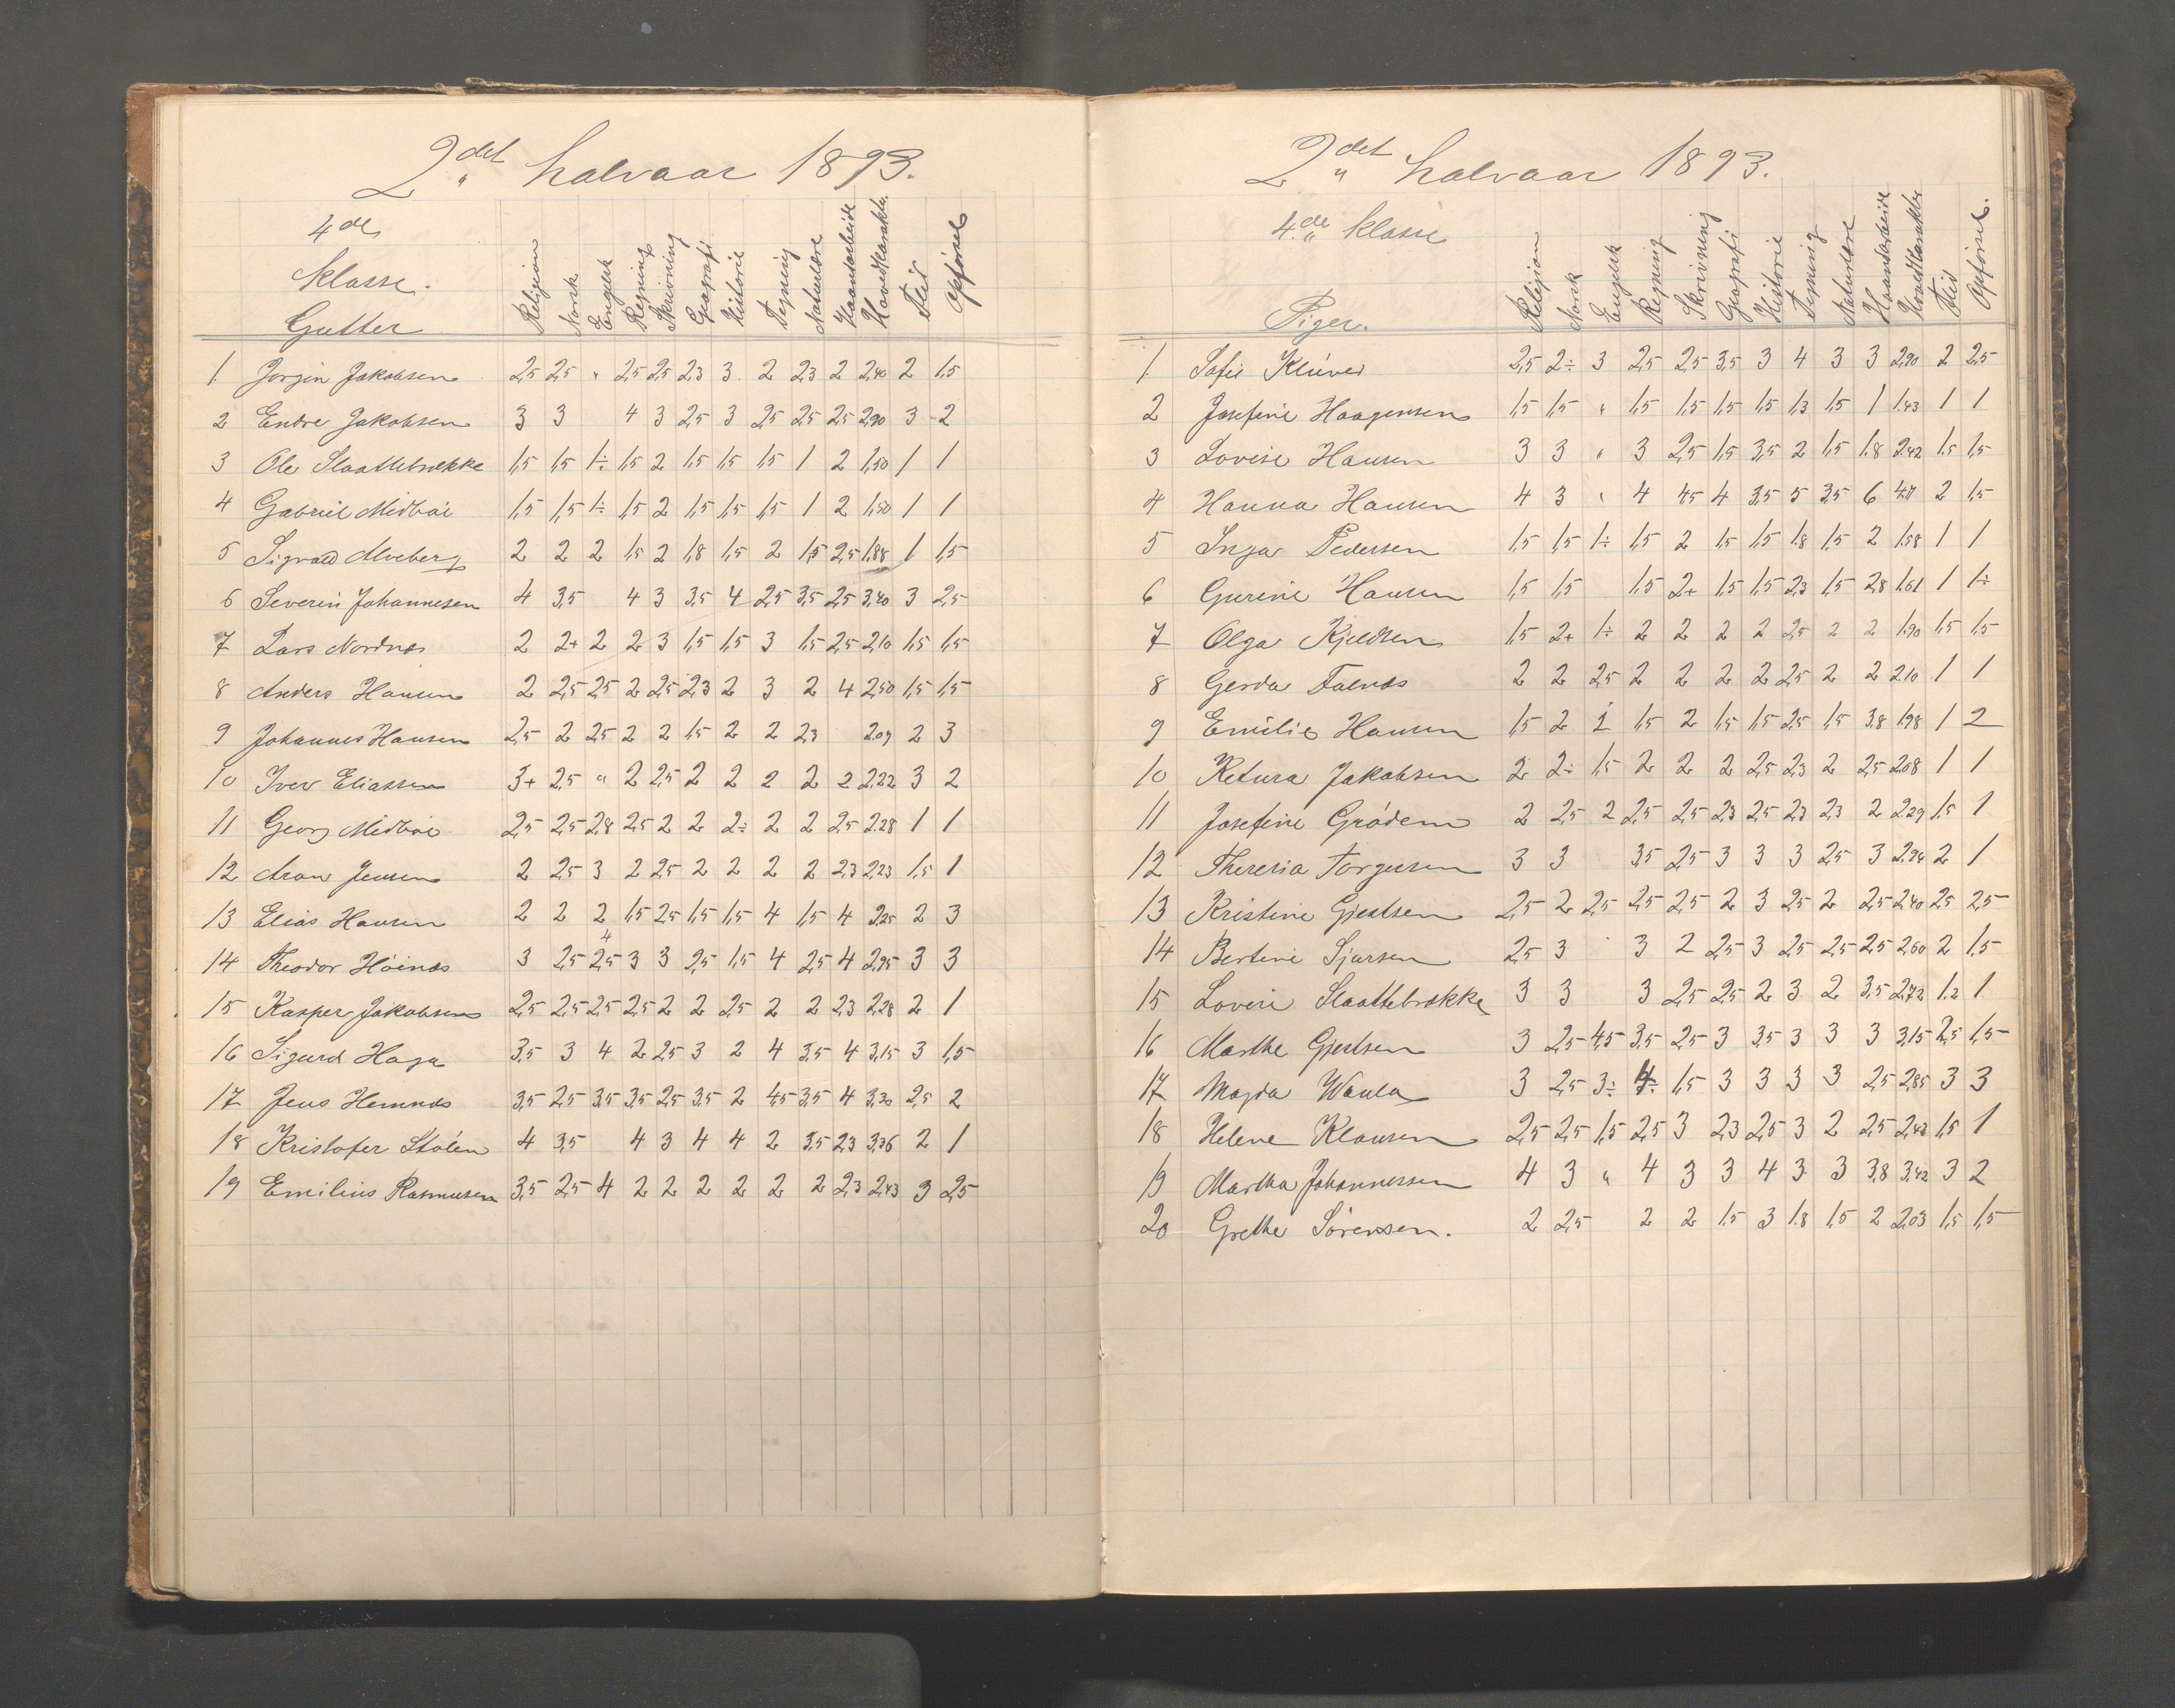 2det halvaar 1893.
4de
Klasse.
Gutter
Religion Norsk Engelsk Regning Skrivning Geografi Historie Tegning Naturlære Haandarbeide Hovedkarakter Flid Opførsel
1. Jørgin Jakobsen 2,5 2,5 " 2,5 2,5 2,3 3 2 2,3 2 2,40 2 1,5
2 Endre Jakobsen 3 3 4 3 2,5 3 2,5 2,5 2,5 2,90 3 2
3 Ole Slaattebrække 1,5 1,5 1÷ 1,5 2 1,5 1,5 1,5 1 2 1,50 1 1
4 Gabriel Midbøe 1,5 1,5 1÷ 1,5 2 1,5 1,5 1,5 1 2 1,50 1 1
5 Sigvald Alveberg 2 2 2 1,5 2 1,8 1,5 2 1,5 2,5 1,88 1 1,5
6 Severin Johannesen 4 3,5 4 3 3,5 4 2,5 3,5 2,5 3,40 3 2,5
7 Lars Nordnes 2 2+ 2 2 3 1,5 1,5 3 1,5 2,5 2,10 1,5 1,5
8 Anders Hansen 2 2,5 2,5 2 2,5 2,3 2 3 2 4 2,50 1,5 1,5
9 Johannes Hansen 2,5 2 2,5 2 2 1,5 2 2 2,3 2,09 2 3
10 Iver Eliassen 3+ 2,5 " 2 2,5 2 2 2 2 2 2,22 3 2
11 Georg Midbøe 2,5 2,5 2,8 2,5 2 2 2÷ 2 2 2,5 2,28 1 1
12 Aron Jensen 2 2,5 3 2 2,5 2 2 2 2 2,3 2,23 1,5 1
13 Elias Hansen 2 2 2 1,5 2,5 1,5 1,5 4 1,5 4 2,25 2 3
4
14 Theodor Høinæs 3 2,5 2,5 3 3 2,5 1,5 4 2,5 4 2,95 3 3
15 Kasper Jakobsen 2,5 2,5 2,5 2,5 2 2 2,5 2 2 2,3 2,28 2 1
16 Sigurd Haga 3,5 3 4 2 2,5 3 2 4 3,5 4 3,15 3 1,5
17 Jens Hemnæs 3,5 2,5 3,5 3,5 2,5 3,5 2 4,5 3,5 4 3,30 2,5 2
18 Kristofer Stølen 4 3,5 4 3 4 4 2 3,5 2,3 3,36 2 1
19 Emilius Rasmusen 3,5 2,5 4 2 2 2 2 2 2 2,3 2,43 3 2,5
2det halvaar 1893.
4.de Klasse
Piger.
Religion Norsk Engelsk Regning Skrivning Geografi Historie Tegning Naturlære Haandarbeide Hovedkarakter Flid Opførsel.
1. Sofie Klüver 2,5 2÷ 3 2,5 2,5 3,5 3 4 3 3 2,90 2 2,5
2 Josefine Haagensen 1,5 1,5 " 1,5 1,5 1,5 1,5 1,3 1,5 1 1,43 1 1
3 Lovise Hansen 3 3 " 3 2,5 1,5 3,5 2 1,5 1,8 2,42 1,5 1,5
4 Hanna Hansen 4 3 " 4 4,5 4 3,5 5 3,5 6 4,17 2 1,5
5 Inga Pedersen 1,5 1,5 1÷ 1,5 2 1,5 1,5 1,8 1,5 2 1,58 1 1
6 Gurine Hansen 1,5 1,5 1,5 2+ 1,5 1,5 2,3 1,5 2,8 1,61 1 1÷
7 Olga Kjeldsen 1,5 2+ 1÷ 2 2 2 2 2,5 2 2 1,90 1,5 1,5
8 Gerda Falnæs 2 2 2,5 2 2 2 2 2,5 2 2 2,10 1 1
9 Emilie Hansen 1,5 2 1 1,5 2 1,5 1,5 2,5 1,5 3,8 1,98 1 2
10 Ketura Jakobsen 2 2÷ 1,5 2 2 2 2,5 2,3 2 2,5 2,08 1 1
11 Josefine Grødem 2 2,5 2 2,5 2,5 2,3 2,5 2,3 2,3 2 2,29 1,5 1
12 Theresia Torgersen 3 3 3,5 2,5 3 3 3 2,5 3 2,94 2 1
13 Kristine Gjestsen 2,5 2 2,5 2,5 2,5 2 3 2,5 2 2,5 2,40 2,5 2,5
14 Bertine Sjursen 2,5 3 3 2 2,5 3 2,5 2,5 2,5 2,60 2 1,5
15 Lovise Slaattebrække 3 3 3 2,5 2,5 2 3 2 3,5 2,72 1,2 1
16 Marthe Gjestsen 3 2,5 4,5 3,5 2,5 3 3,5 3 3 3 3,15 2,5 1,5
17 Magda Waula 3 2,5 3÷ 4÷ 1,5 3 3 3 3 2,5 2,85 3 3
18 Helene Klausen 2,5 2,5 1,5 2,5 3 2,3 2,5 3 2 2,5 2,43 1,5 1
19 Martha Johannessen 4 3 " 4 3 3 4 3 3 3,8 3,42 3 2
20 Grethe Sørensen. 2 2,5 2 2 1,5 3 1,8 1,5 2 2,03 1,5 1,5